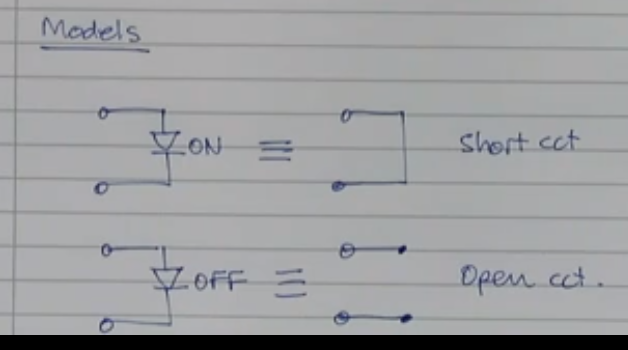 Models
ON ≡ Short cct
OFF ≡ Open cct.